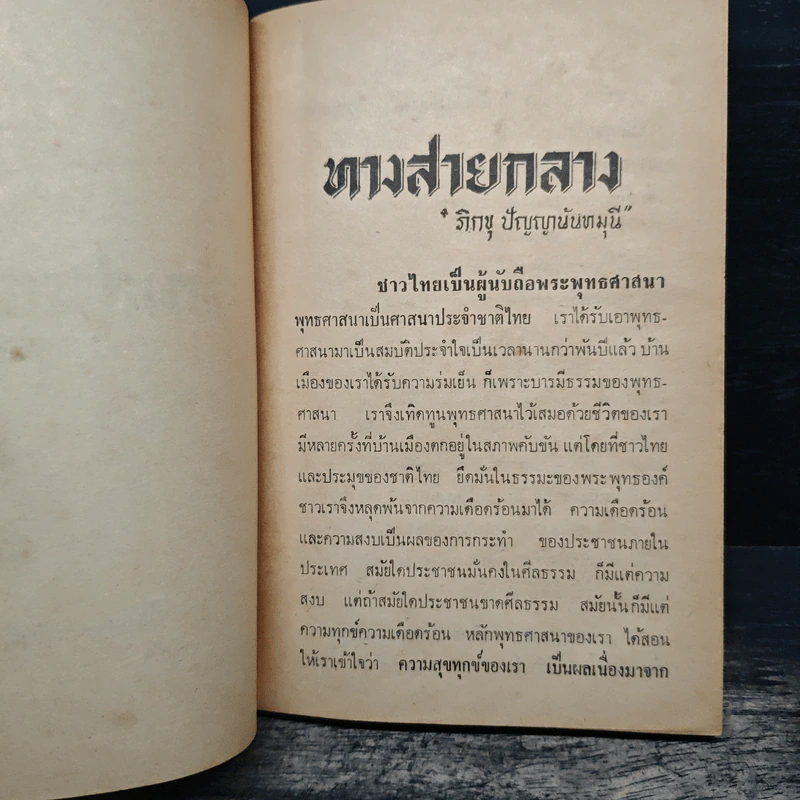 ทางสายกลาง
"ภิกขุ ปัญญานันทมุนี"
ชาวไทยเป็นผู้นับถือพระพุทธศาสนา
พุทธศาสนาเป็นศาสนาประจำชาติไทย เราได้รับเอาพุทธ-
ศาสนามาเป็นสมบัติประจำใจเป็นเวลานานกว่าพันปีแล้ว บ้าน
เมืองของเราได้รับความร่มเย็น ก็เพราะบารมีธรรมของพุทธ-
ศาสนา เราจึงเทิดทูนพุทธศาสนาไว้เสมอด้วยชีวิตของเรา
มีหลายครั้งที่บ้านเมืองตกอยู่ในสภาพคับขัน แต่โดยที่ชาวไทย
และประมุขของชาติไทย ยึดมั่นในธรรมะของพระพุทธองค์
ชาวเราจึงหลุดพ้นจากความเดือดร้อนมาได้ ความเดือดร้อน
และความสงบเป็นผลของการกระทำ ของประชาชนภายใน
ประเทศ สมัยใดประชาชนมั่นคงในศีลธรรม ก็มีแต่ความ
สงบ แต่ถ้าสมัยใดประชาชนขาดศีลธรรม สมัยนั้นก็มีแต่
ความทุกข์ความเดือดร้อน หลักพุทธศาสนาของเรา ได้สอน
ให้เราเข้าใจว่า ความสุขทุกข์ของเรา เป็นผลเนื่องมาจาก